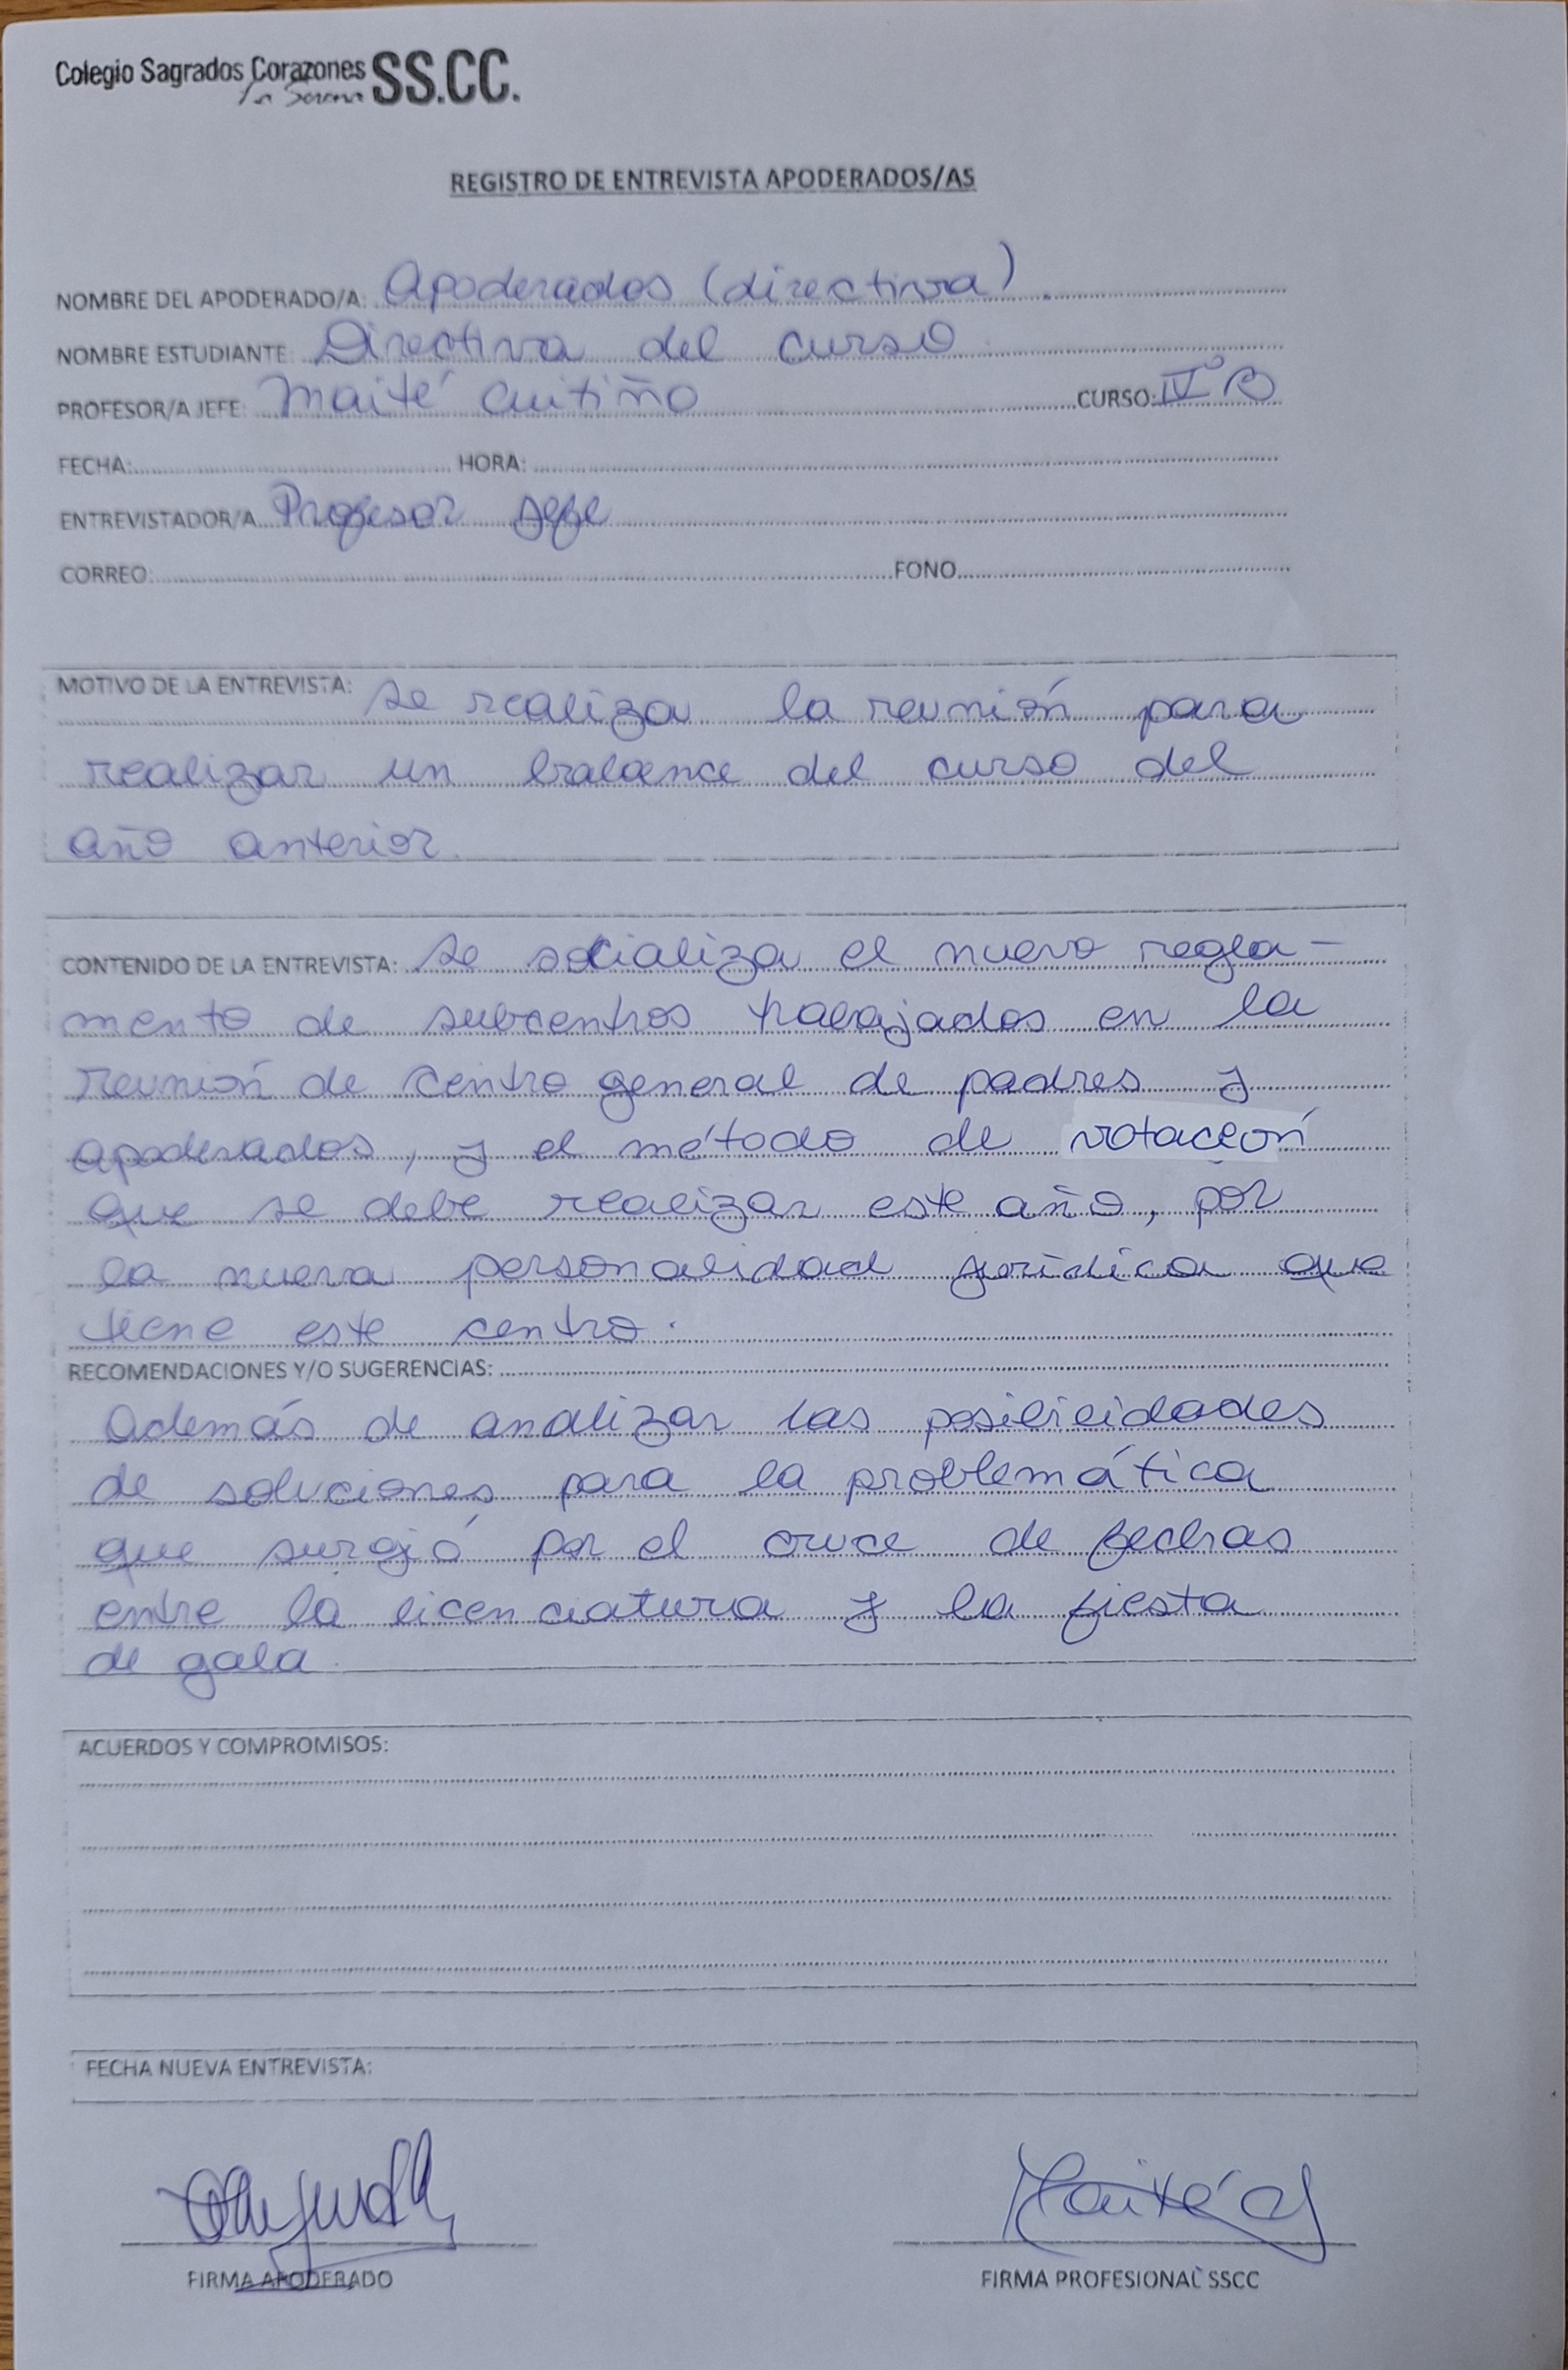 Colegio Sagrados Corazones SS.CC.
La Serena
REGISTRO DE ENTREVISTA APODERADOS/AS
NOMBRE DEL APODERADO/A: Apoderados (directiva).
NOMBRE ESTUDIANTE: Directiva del curso
PROFESOR/A JEFE: Maité Cuitiño CURSO: IV° B
FECHA: HORA:
ENTREVISTADOR/A Profesor Jefe
CORREO: FONO
MOTIVO DE LA ENTREVISTA: Se realiza la reunión para
realizar un balance del curso del
año anterior.
CONTENIDO DE LA ENTREVISTA: Se socializa el nuevo regla-
mento de subcentros trabajados en la
reunión de centro general de padres y
apoderados, y el método de votación
que se debe realizar este año, por
la nueva personalidad jurídica que
tiene este centro.
RECOMENDACIONES Y/O SUGERENCIAS:
Además de analizar las posibilidades
de soluciones para la problemática
que surgió por el cruce de fechas
entre la licenciatura y la fiesta
de gala.
ACUERDOS Y COMPROMISOS:
FECHA NUEVA ENTREVISTA:
Maité C
FIRMA APODERADO FIRMA PROFESIONAL SSCC